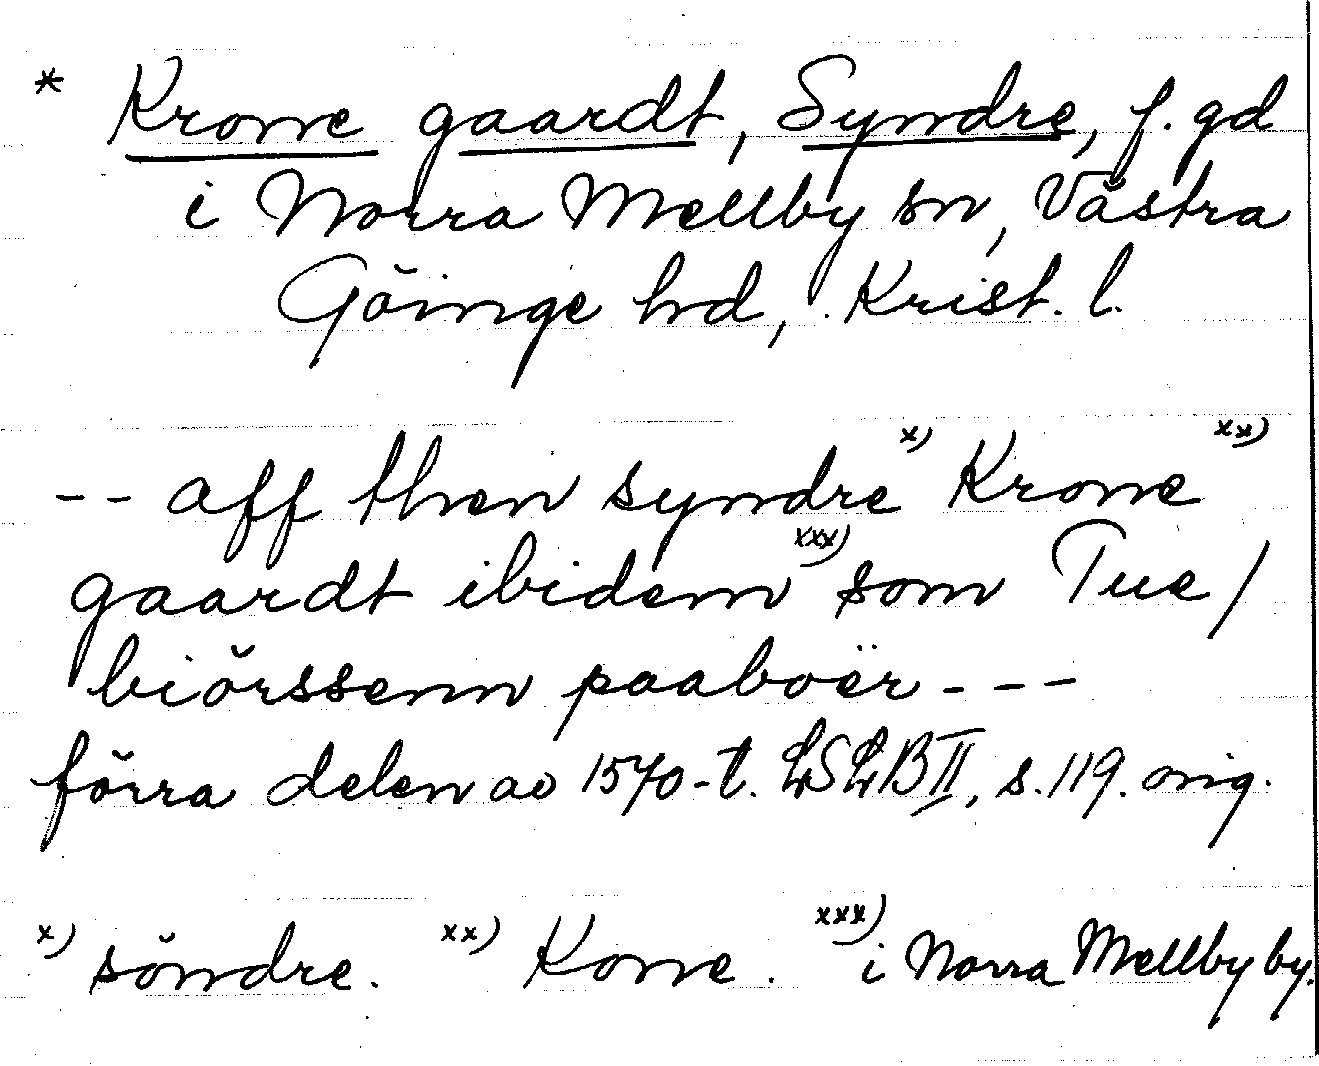 * Krone gaardt, Syndre, f. gd
i Norra Mellby sn, Västra
Göinge hrd, Krist. l.
-- aff then syndre x) Krone xx)
gaardt ibidem xxx) som Tue /
biörssenn paaboër ---
förra delen av 1570-t. LSLB II, s. 119. orig.
x) söndre. xx) Kone. xxx) i Norra Mellby by.